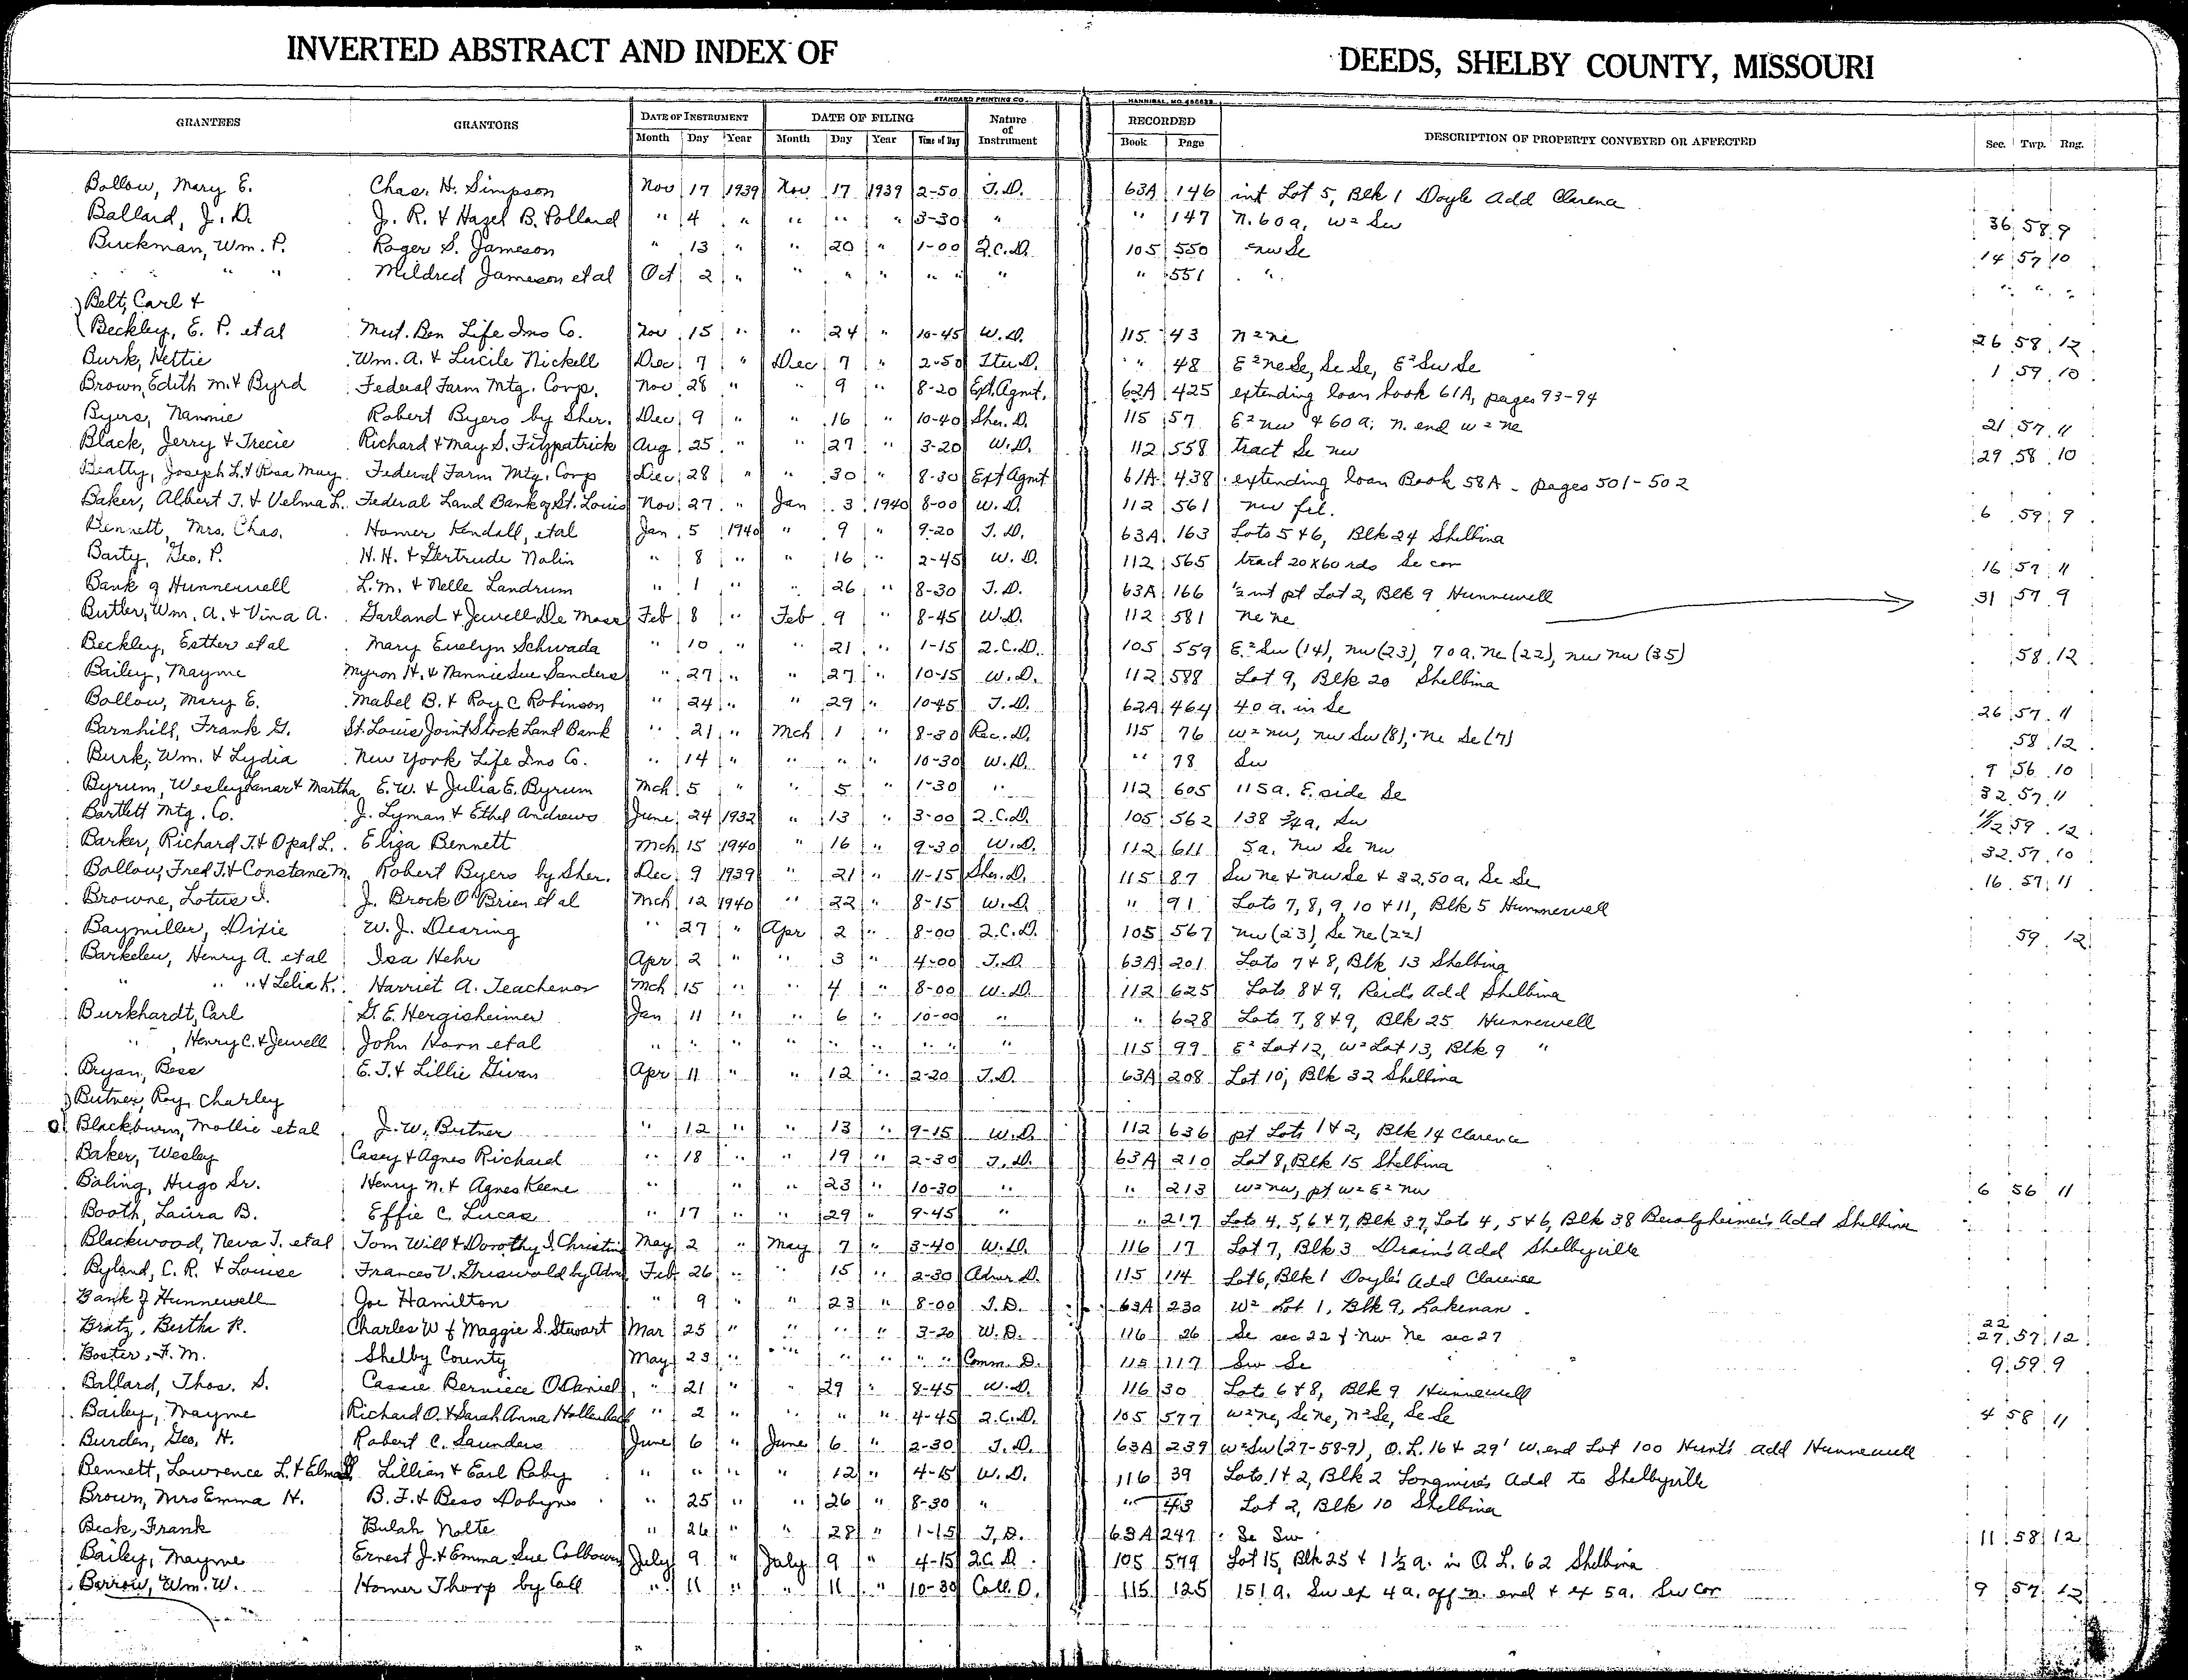 INVERTED ABSTRACT AND INDEX OF DEEDS, SHELBY COUNTY, MISSOURI
STANDARD PRINTING CO. HANNIBAL, MO.
GRANTEES GRANTORS DATE OF INSTRUMENT DATE OF FILING Nature of Instrument RECORDED DESCRIPTION OF PROPERTY CONVEYED OR AFFECTED Sec. Twp. Rng.
Month Day Year Month Day Year Time of Day Book Page
Bollow, Mary E. Chas. H. Simpson Nov 17 1939 Nov 17 1939 2-50 T.D. 63A 146 int Lot 5, Blk 1 Doyle Add Clarena
Ballard, J. D. J. R. & Hazel B. Polland " 4 " " " " 3-30 " " 147 N. 60 a, W² Sw 36 58 9
Buckman, Wm. P. Roger S. Jameson " 13 " " 20 " 1-00 Q.C.D. 105 550 nw Se 14 57 10
" " " Mildred Jameson et al Oct 2 " " " " " " " " 551 " " " "
Belt, Carl &
Beckley, E. P. et al Mut. Ben Life Ins Co. Nov 15 " " 24 " 10-45 W.D. 115 43 n² ne 26 58 12
Burk, Hettie Wm. A. & Lucile Nickell Dec 7 " Dec 7 " 2-50 Tru D. " 48 E² ne Se, Se Se, E² Sw Se 1 59 10
Brown, Edith M. & Byrd Federal Farm Mtg. Corp. Nov 28 " " 9 " 8-20 Ext. Agmt. 62A 425 extending loan book 61A, pages 93-94
Byers, Nannie Robert Byers by Sher. Dec 9 " " 16 " 10-40 Sher. D. 115 57 E² nw & 60 a, n. end w² ne 21 57 11
Black, Jerry & Trecie Richard & May S. Fitzpatrick Aug 25 " " 27 " 3-20 W.D. 112 558 tract Se nw 29 58 10
Beatty, Joseph L. & Rosa May Federal Farm Mtg. Corp Dec 28 " " 30 " 8-30 Ext Agmt 61A 438 extending loan Book 58A - pages 501-502
Baker, Albert T. & Velma L. Federal Land Bank of St. Louis Nov 27 " Jan 3 1940 8-00 W.D. 112 561 nw frl. 6 59 9
Bennett, Mrs. Chas. Homer Kendall, et al Jan 5 1940 " 9 " 9-20 T.D. 63A 163 Lots 5 & 6, Blk 24 Shelbina
Barty, Geo. P. H. H. & Gertrude Nolin " 8 " " 16 " 2-45 W.D. 112 565 tract 20 x 60 rds Se cor 16 57 11
Bank of Hunnewell L. M. & Nelle Landrum " 1 " " 26 " 8-30 T.D. 63A 166 ½ int pt Lot 2, Blk 9 Hunnewell
Butler, Wm. A. & Vina A. Garland & Jewell De Moss Feb 8 " Feb 9 " 8-45 W.D. 112 581 ne ne 31 57 9
Beckley, Esther et al Mary Evelyn Schwada " 10 " " 21 " 1-15 Q.C.D. 105 559 E² Sw (14), nw (23), 70 a. ne (22), nw nw (35) 58 12
Bailey, Mayme Myron H. & Nannie Sue Sanders " 27 " " 27 " 10-15 W.D. 112 588 Lot 9, Blk 20 Shelbina
Bollow, Mary E. Mabel B. & Roy C Robinson " 24 " " 29 " 10-45 T.D. 62A 464 40 a. in Se 26 57 11
Barnhill, Frank G. St. Louis Joint Stock Land Bank " 21 " Mch 1 " 8-30 Rec. D. 115 76 w² nw, nw Sw (8), ne Se (7) 58 12
Burk, Wm. & Lydia New York Life Ins Co. " 14 " " " " 10-30 W.D. " 78 Sw 9 56 10
Byrum, Wesley Lamar & Martha E. W. & Julia E. Byrum Mch 5 " " 5 " 1-30 " 112 605 115 a. E. side Se 32 57 11
Bartlett Mtg. Co. J. Lyman & Ethel Andrews June 24 1932 " 13 " 3-00 Q.C.D. 105 562 138 3/4 a, Sw 11/12 59 12
Barker, Richard T. & Opal L. Eliza Bennett Mch 15 1940 " 16 " 9-30 W.D. 112 611 5a. nw Se nw 32 57 10
Bollow, Fred T. & Constance M. Robert Byers by Sher. Dec 9 1939 " 21 " 11-15 Sher. D. 115 87 Sw ne & nw Se & 32.50 a, Se Se 16 57 11
Browne, Lotus I. J. Brock O'Brien et al Mch 12 1940 " 22 " 8-15 W.D. " 91 Lots 7, 8, 9, 10 & 11, Blk 5 Hunnewell
Baymiller, Dixie W. J. Dearing " 27 " Apr 2 " 8-00 Q.C.D. 105 567 nw (23), Se ne (22) 59 12
Barkelew, Henry A. et al Isa Hehr Apr 2 " " 3 " 4-00 T.D. 63A 201 Lots 7 & 8, Blk 13 Shelbina
" " " & Lelia K. Harriet A. Teachenor Mch 15 " " 4 " 8-00 W.D. 112 625 Lots 8 & 9, Reid's Add Shelbina
Burkhardt, Carl G. E. Hergisheimer Jan 11 " " 6 " 10-00 " " 628 Lots 7, 8 & 9, Blk 25 Hunnewell
" , Henry C. & Jewell John Horn et al " " " " " " " " " 115 99 E² Lot 12, W² Lot 13, Blk 9 "
Bryan, Bess E. T. & Lillie Givan Apr 11 " " 12 " 2-20 T.D. 63A 208 Lot 10, Blk 32 Shelbina
Butner, Roy, Charley
Blackburn, Mollie et al J. W. Butner " 12 " " 13 " 9-15 W.D. 112 636 pt Lots 1 & 2, Blk 14 Clarence
Baker, Wesley Casey & Agnes Richard " 18 " " 19 " 2-30 T.D. 63A 210 Lot 8, Blk 15 Shelbina
Baling, Hugo Sr. Henry N. & Agnes Keene " " " 23 " 10-30 " " 213 W² nw, pt w² E² nw 6 56 11
Booth, Laura B. Effie C. Lucas " 17 " " 29 " 9-45 " " 217 Lots 4, 5, 6 & 7, Blk 37, Lots 4, 5 & 6, Blk 38 Add Shelbina
Blackwood, Neva T. et al Tom Will & Dorothy I. Christine May 2 " May 7 " 3-40 W.D. 116 17 Lot 7, Blk 3 Drain's Add Shelbyville
Byland, C. R. & Louise Frances V. Griswold by Admr Feb 26 " " 15 " 2-30 Admr D. 115 114 Lot 6, Blk 1 Doyle's Add Clarence
Bank of Hunnewell Joe Hamilton " 9 " " 23 " 8-00 T.D. 63A 230 W² Lot 1, Blk 9, Lakenan
Bratz, Bertha R. Charles W & Maggie S. Stewart Mar 25 " " " " 3-20 W.D. 116 26 Se sec 22 & Nw Ne sec 27 22 27 57 12
Boster, F. M. Shelby County May 23 " " " " " " Comm. D. 115 117 Sw Se 9 59 9
Ballard, Thos. S. Cassie Berniece O'Daniel " 21 " " 29 " 8-45 W.D. 116 30 Lots 6 & 8, Blk 9 Hunnewell
Bailey, Mayme Richard O. & Sarah Anna Hollenbeck " 2 " " " " 4-45 Q.C.D. 105 577 W² ne, Se ne, n² Se, Se Se 4 58 11
Burden, Geo. H. Robert C. Saunders June 6 " June 6 " 2-30 T.D. 63A 239 W² Sw (27-58-9), O.L. 16 & 29' W. end Lot 100 Hunt's Add Hunnewell
Bennett, Lawrence L. & Elma Lillian & Earl Raby " " " " 12 " 4-15 W.D. 116 39 Lots 1 & 2, Blk 2 Longmire's Add to Shelbyville
Brown, Mrs Emma H. B. F. & Bess Dobyns " 25 " " 26 " 8-30 " " 43 Lot 2, Blk 10 Shelbina
Beck, Frank Bulah Nolte " 26 " " 28 " 1-15 T.D. 63A 247 Se Sw 11 58 12
Bailey, Mayme Ernest J. & Emma Sue Calhoun July 9 " July 9 " 4-15 Q.C.D. 105 579 Lot 15, Blk 25 & 1½ a. in O.L. 62 Shelbina
Berrow, Wm. W. Homer Thorp by Coll " 11 " " 11 " 10-30 Coll. D. 115 125 151 a. Sw ex 4 a. off n. end & ex 5 a. Sw Cor 9 57 12